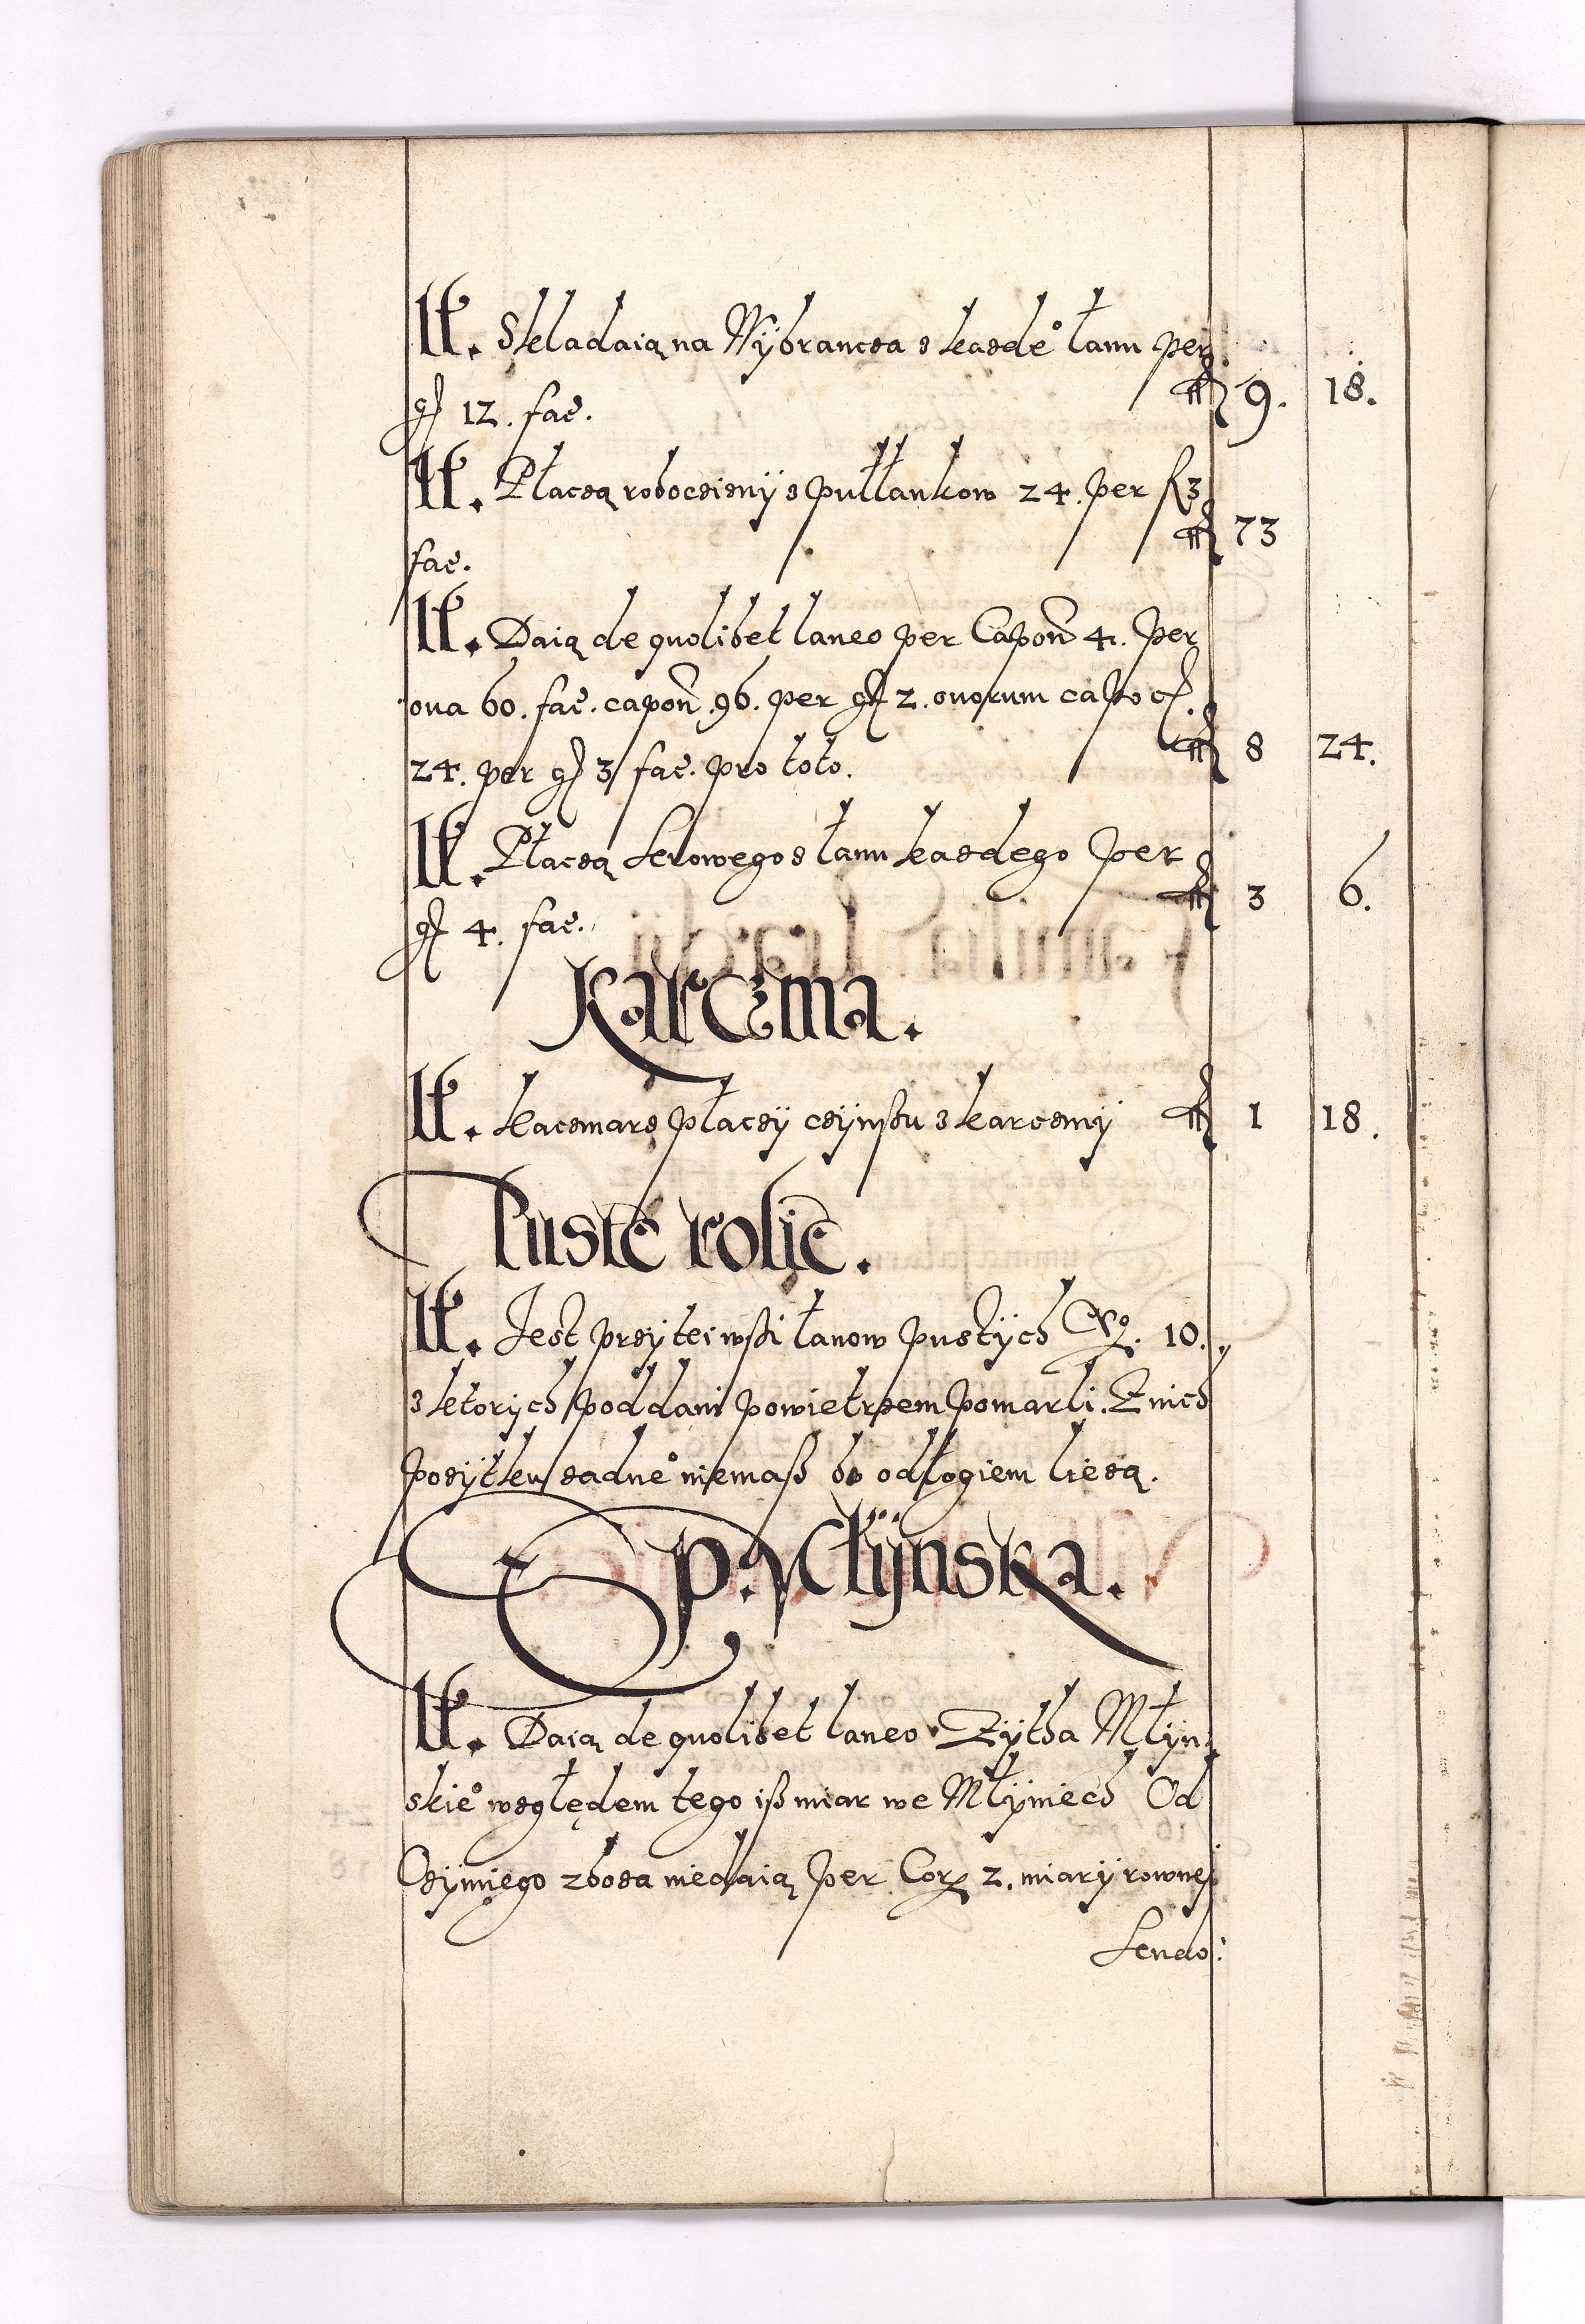 It. Skladaią na Wÿbrancza z kazde° łanu per
gr 12. fac. fl 9. 18.
It. Płaczą roboczizny z pułłankow 24. per fl 3
fac. fl 73
It. Daią de quolibet laneo per Capon 4. Per
oua 60. fac. capon. 96. per gr 2. ouorum capo
24. per gr 3 fac. pro toto. fl 8 24.
It. Płaczą Serowego z łanu kazdego per
gr 4. fac. fl 3 6.
Karczma.
It. kaczmarz płaczÿ czÿnszu z karczmÿ fl 1 18.
Puste rolie.
It. Jest przÿ tei wsżi łanow pustÿch No. 10.
z ktorÿch poddani powietrzem pomarli. Z nich
pozÿtku zadne° niemasz bo odłogiem liezą.
Sp. Młÿnska.
It. Daią de quolibet laneo Zÿtha Młÿn:
skie° względem tego isz miar we Młÿniech Od
Czÿniego zboza niedaią per Cor 2. miarÿ rowneÿ
Sendo: